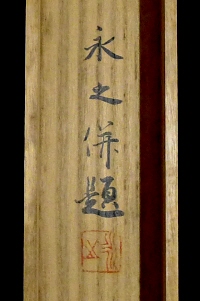 永之併題